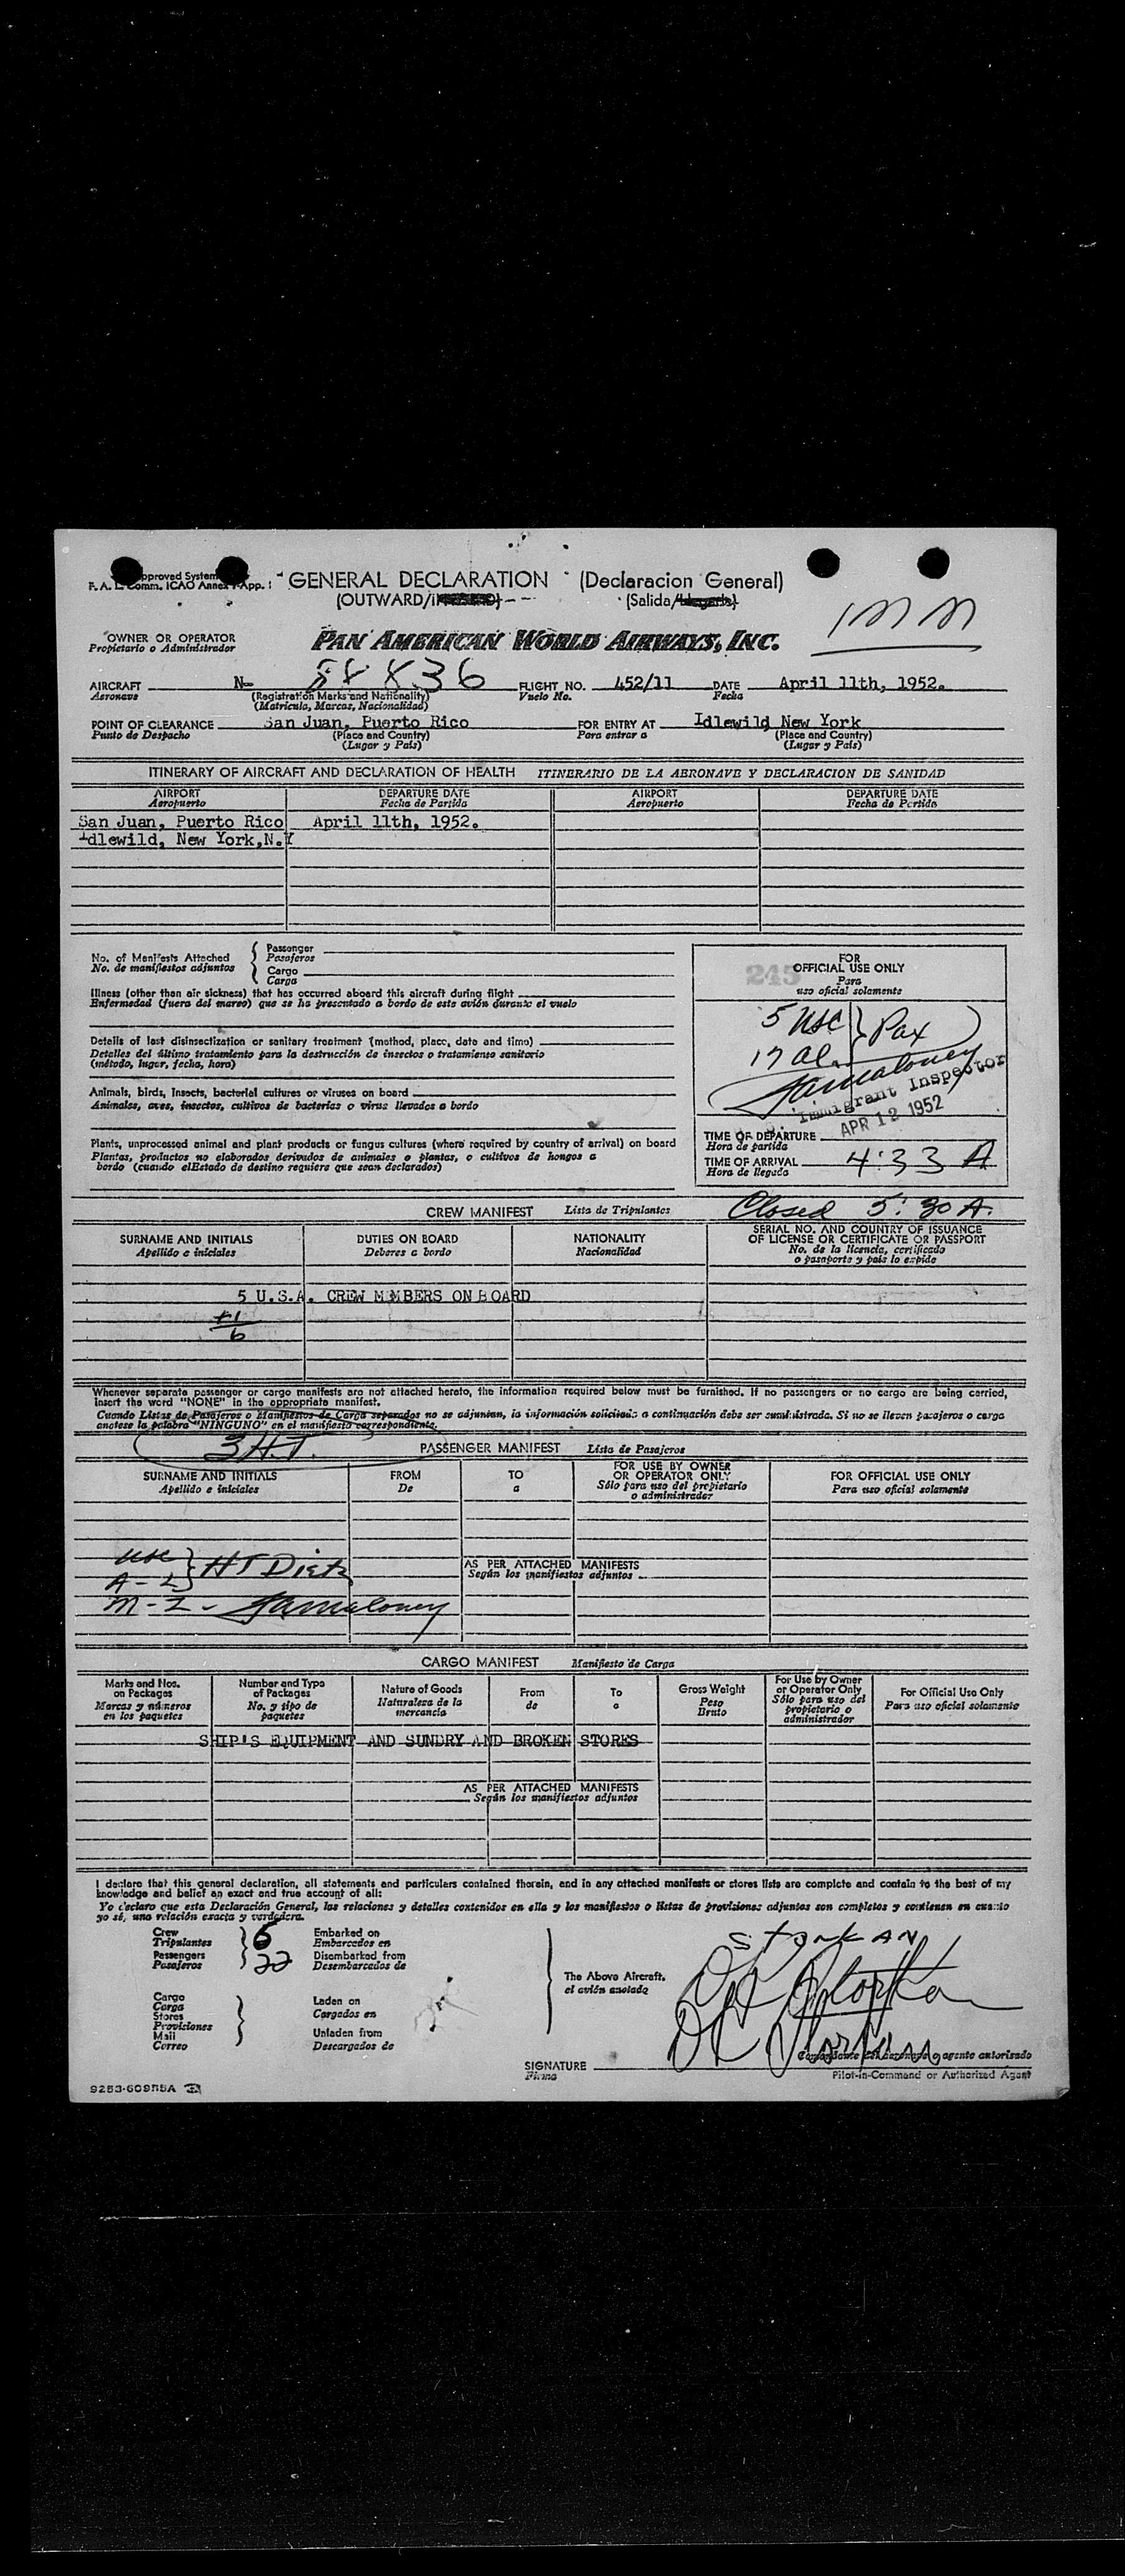 Approved System
F. A. L. Comm. ICAO Annex App. I
GENERAL DECLARATION (Declaracion General)
(OUTWARD/ (Salida/Llegada)
OWNER OR OPERATOR
Propietario o Administrador
PAN AMERICAN WORLD AIRWAYS, INC.
AIRCRAFT N- FLIGHT NO. 452/11 DATE April 11th, 1952.
Aeronave Vuelo No. Fecha
(Registration Marks and Nationality)
(Matricula, Marcas, Nacionalidad)
POINT OF CLEARANCE San Juan, Puerto Rico FOR ENTRY AT Idlewild New York
Punto de Despacho (Place and Country) Para entrar a (Place and Country)
(Lugar y País) (Lugar y País)
ITINERARY OF AIRCRAFT AND DECLARATION OF HEALTH ITINERARIO DE LA AERONAVE Y DECLARACION DE SANIDAD
AIRPORT DEPARTURE DATE AIRPORT DEPARTURE DATE
Aeropuerto Fecha de Partida Aeropuerto Fecha de Partida
San Juan, Puerto Rico April 11th, 1952.
Idlewild, New York,N.Y
No. of Manifests Attached Passenger
No. de manifiestos adjuntos Pasajeros
Cargo
Carga
Illness (other than air sickness) that has occurred aboard this aircraft during flight
Enfermedad (fuera del mareo) que se ha presentado a bordo de este avión durante el vuelo
Details of last disinsectization or sanitary treatment (method, place, date and time)
Detalles del último tratamiento para la destrucción de insectos o tratamiento sanitario
(método, lugar, fecha, hora)
Animals, birds, insects, bacterial cultures or viruses on board
Animales, aves, insectos, cultivos de bacterias o virus llevados a bordo
Plants, unprocessed animal and plant products or fungus cultures (where required by country of arrival) on board
Plantas, productos no elaborados derivados de animales o plantas, o cultivos de hongos a
bordo (cuando elEstado de destino requiere que sean declarados)
FOR
OFFICIAL USE ONLY
Para
uso oficial solamente
5 USC } Pax
17 al.
Jamaloney
Immigrant Inspector
APR 12 1952
TIME OF DEPARTURE
Hora de partida
TIME OF ARRIVAL 4:33 A
Hora de llegada
Closed 5:30 A.
CREW MANIFEST Lista de Tripulantes
SURNAME AND INITIALS DUTIES ON BOARD NATIONALITY SERIAL NO. AND COUNTRY OF ISSUANCE
Apellido e iniciales Deberes a bordo Nacionalidad OF LICENSE OR CERTIFICATE OR PASSPORT
No. de la licencia, certificado
o pasaporte y país lo expide
5 U.S.A. CREW MEMBERS ON BOARD
+1
6
Whenever separate passenger or cargo manifests are not attached hereto, the information required below must be furnished. If no passengers or no cargo are being carried,
insert the word "NONE" in the appropriate manifest.
Cuando Listas de Pasajeros o Manifiestos de Carga separados no se adjuntan, la información solicitada a continuación debe ser suministrada. Si no se lleven pasajeros o carga
anotese la palabra "NINGUNO" en el manifiesto correspondiente.
3 H.T.
PASSENGER MANIFEST Lista de Pasajeros
SURNAME AND INITIALS FROM TO FOR USE BY OWNER FOR OFFICIAL USE ONLY
Apellido e iniciales De a OR OPERATOR ONLY Para uso oficial solamente
Sólo para uso del propietario
o administrador
USC } HT Dietz
A - L
M-Z - Jamaloney
AS PER ATTACHED MANIFESTS
Según los manifiestos adjuntos
CARGO MANIFEST Manifiesto de Carga
Marks and Nos. Number and Type Nature of Goods From To Gross Weight For Use by Owner For Official Use Only
on Packages of Packages Naturaleza de la de a Peso or Operator Only Para uso oficial solamente
Marcas y números No. y tipo de mercancía Bruto Sólo para uso del
en los paquetes paquetes propietario o
administrador
SHIP'S EQUIPMENT AND SUNDRY AND BROKEN STORES
AS PER ATTACHED MANIFESTS
Según los manifiestos adjuntos
I declare that this general declaration, all statements and particulars contained therein, and in any attached manifests or stores lists are complete and contain to the best of my
knowledge and belief an exact and true account of all:
Yo declaro que esta Declaración General, las relaciones y detalles contenidos en ella y los manifiestos o listas de provisiones adjuntos son completos y contienen en cuanto
yo sé, una relación exacta y verdadera.
Crew 6 Embarked on
Tripulantes Embarcados en
Passengers 22 Disembarked from
Pasajeros Desembarcados de
Cargo Laden on
Carga Cargados en
Stores
Provisiones
Mail Unladen from
Correo Descargados de
The Above Aircraft.
el avión anotado
STORKAN
SIGNATURE
Firma
o agente autorizado
Pilot-in-Command or Authorized Agent